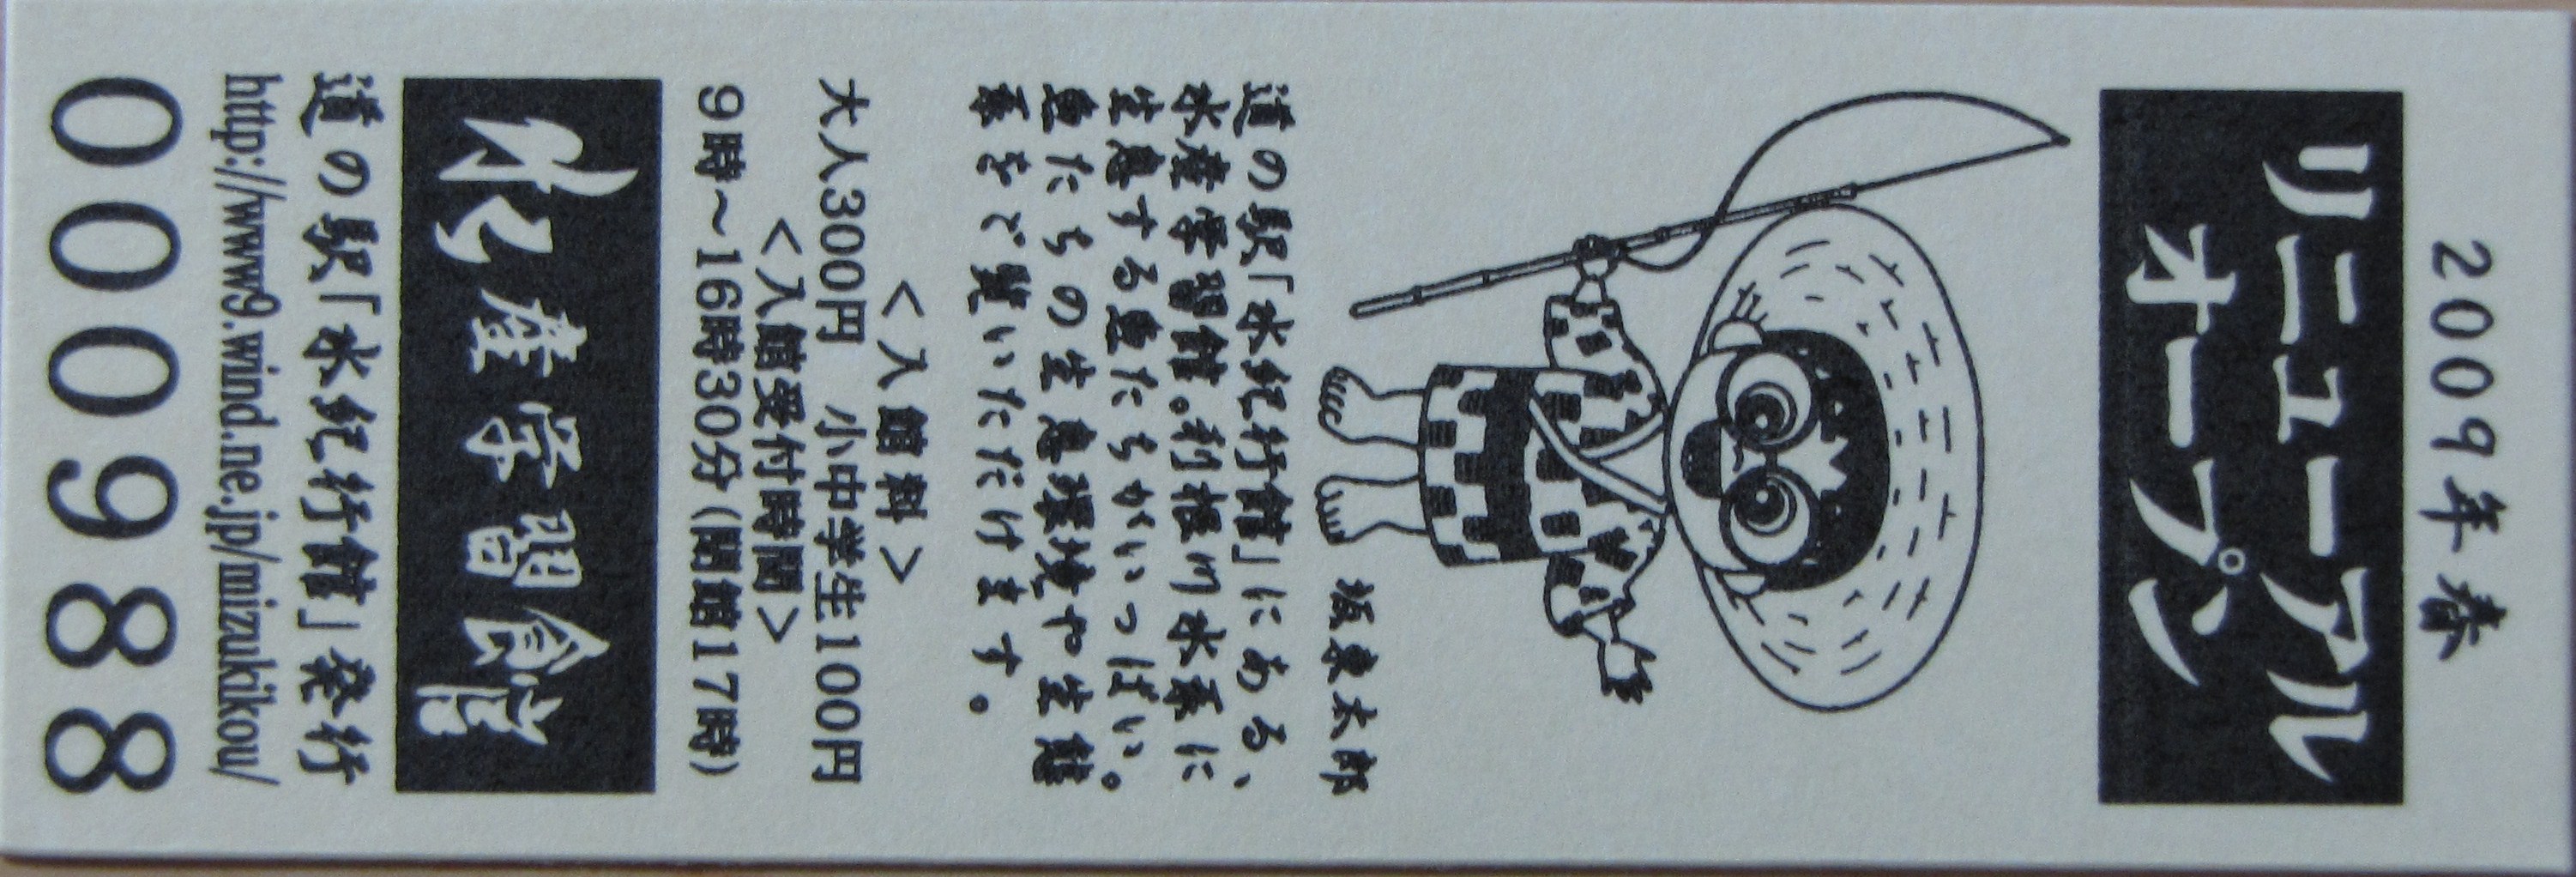 2009年春
リニューアル
オープン
坂東太郎
道の駅「水紀行館」にある、
水産学習館。利根川水系に
生息する魚たちがいっぱい。
魚たちの生息環境や生態
系をご覧いただけます。
<入館料>
大人300円　小中学生100円
<入館受付時間>
9時～16時30分(閉館17時)
水産学習館
道の駅「水紀行館」発行
http://www9.wind.ne.jp/mizukikou/
000988